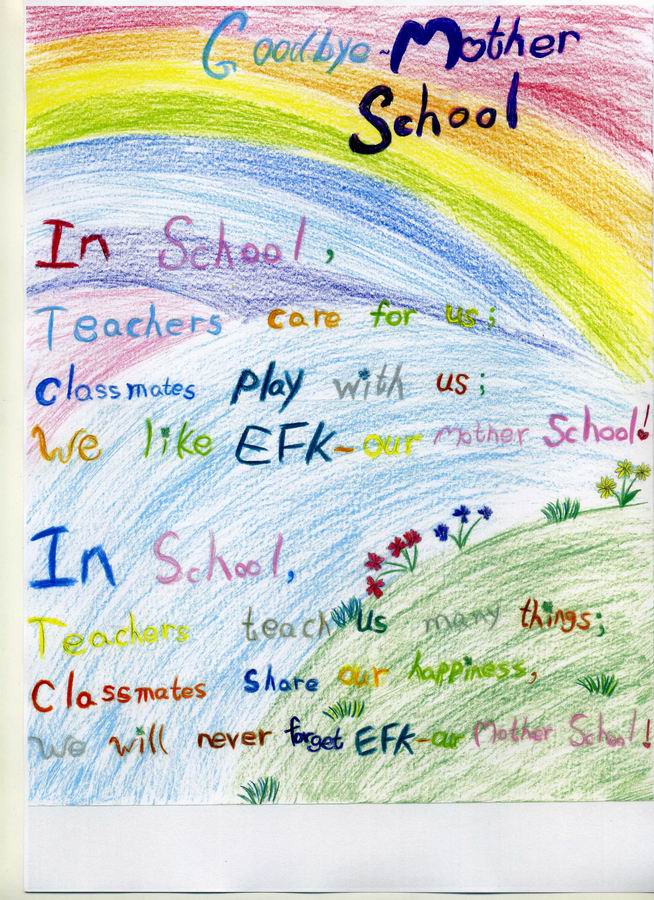 Goodbye~Mother
School
In School,
Teachers care for us;
Classmates play with us;
We like EFK-our Mother School!
In School,
Teachers teach us many things;
Classmates share our happiness,
We will never forget EFK-our Mother School!